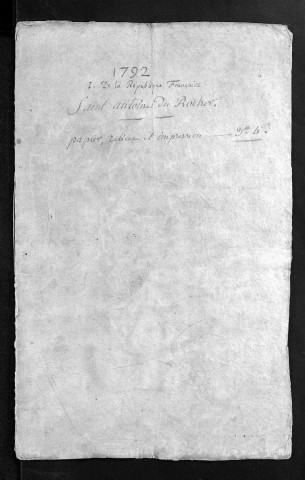 1792
1. De la Republique Francaise
Saint antoine Du Rocher.
papier, relieure et impression